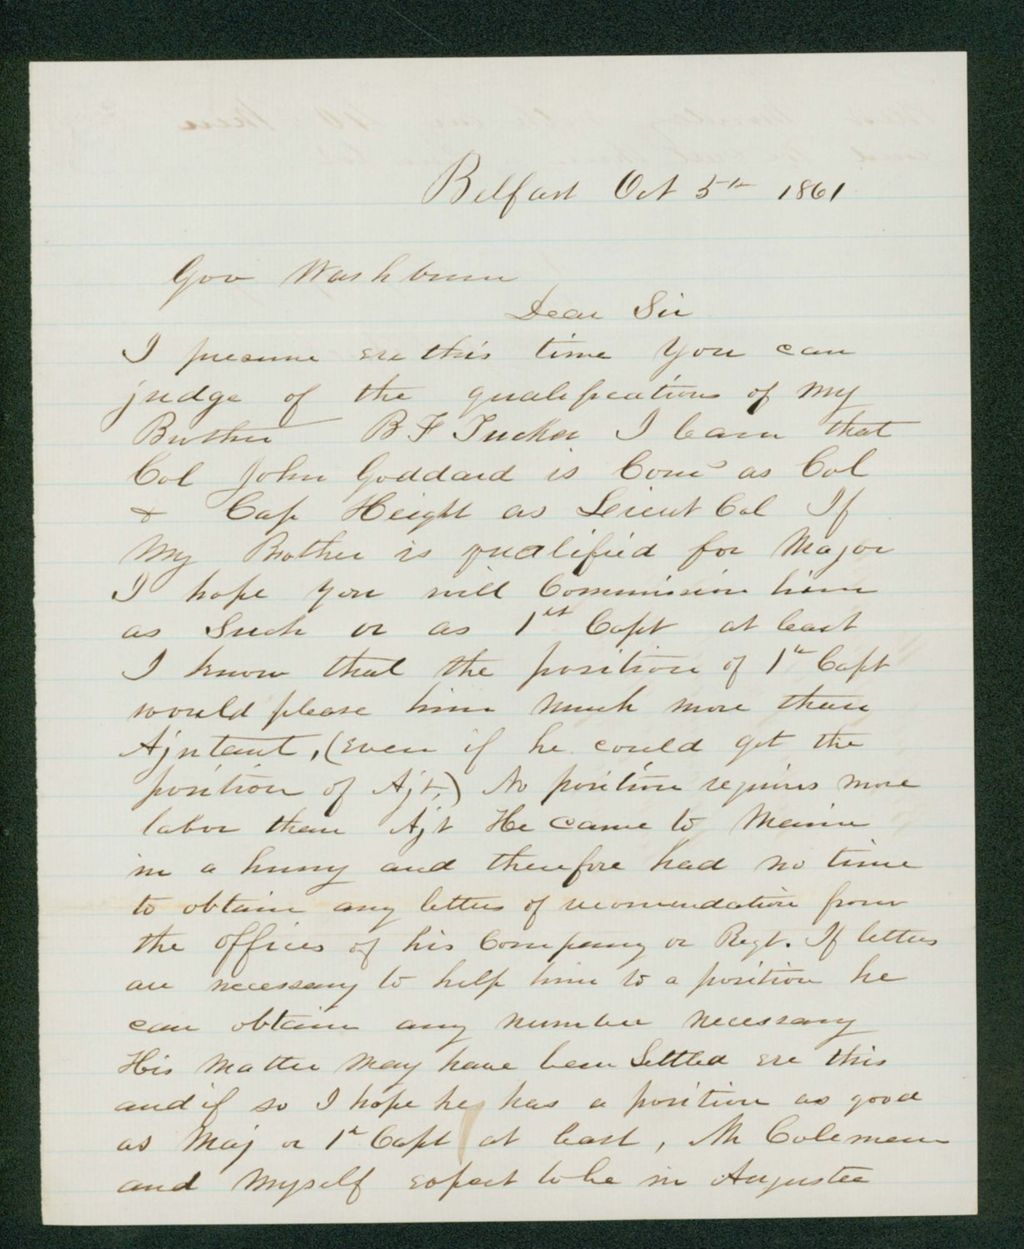 Belfast Oct 5th 1861
Gov Washburn
Dear Sir
I presume ere this time you can
judge of the qualifications of my
Brother B F Tucker I learn that
Col John Goddard is Com'd as Col
& Cap Height as Lieut Col If
My Brother is qualified for Major
I hope you will Commission him
as Such or as 1st Capt at least
I know that the position of 1st Capt
would please him much more than
Ajntant, (Even if he could get the
position of Ajt,) No position requires more
labor than Ajt He came to Maine
in a hurry and therefore had no time
to obtain any letters of recomendation from
the officers of his Company or Regt. If letters
are necessary to help him to a position he
can obtain any number necessary
His matter may have been Settled ere this
and if so I hope he has a position as good
as Maj or 1st Capt at least, Mr Coleman
and myself expect to be in Augusta